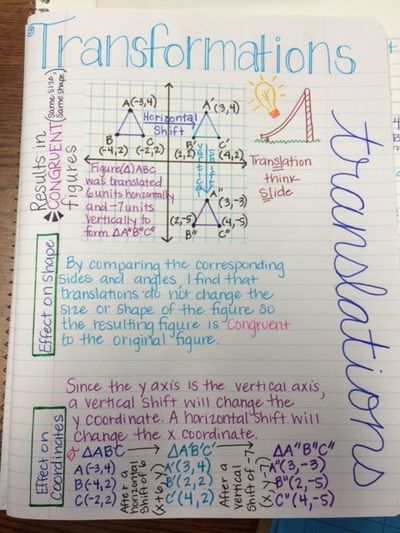 Transformations
translations
Results in
CONGRUENT (same size,
same shape)
figures
A(-3,4)
B
(-4,2)
C
(-2,2)
Horizontal
Shift
A'(3,4)
B'
(2,2)
C'
(4,2)
Vertical
Shift
A"
(3,-3)
(2,-5)
B"
(4,-5)
C"
Figure(Δ)ABC
was translated
6 units horizontally
and -7 units
vertically to
form ΔA"B"C"
Translation
think
Slide
Effect on Shape
By comparing the corresponding
sides and angles, I find that
translations do not change the
size or shape of the figure so
the resulting figure is congruent
to the original figure.
Effect on
Coordinates
Since the y axis is the vertical axis,
a vertical shift will change the
y coordinate. A horizontal shift will
change the x coordinate.
ΔABC
A(-3,4)
B(-4,2)
C(-2,2)
After a
horizontal
Shift of 6
(x+6, y)
ΔA'B'C'
A'(3,4)
B'(2,2)
C'(4,2)
After a
vertical
Shift of -7
(x,y-7)
ΔA"B"C"
A"(3,-3)
B"(2,-5)
C"(4,-5)